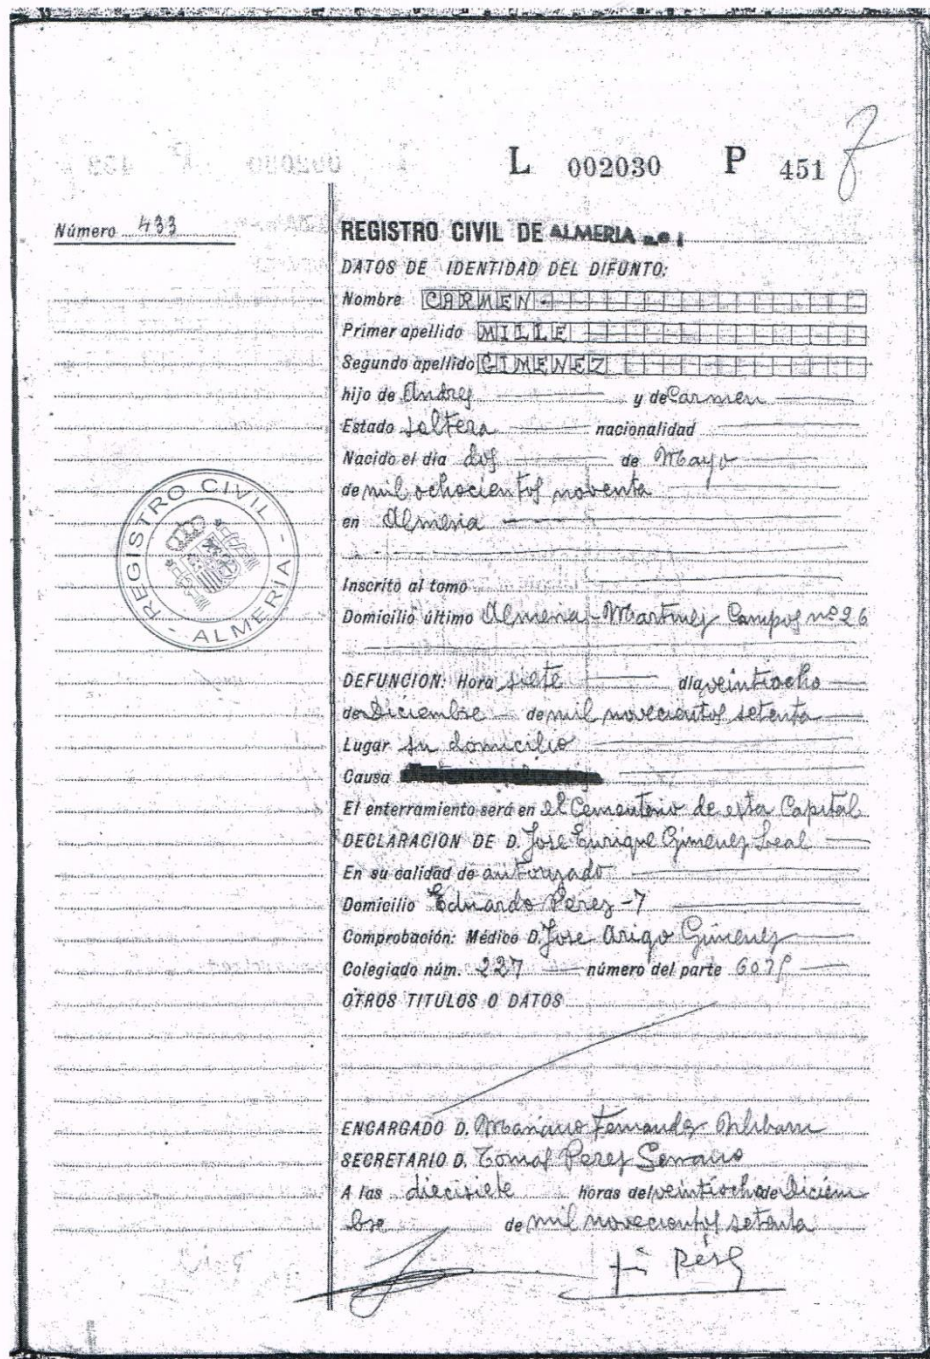 L 002030 P 451
Número 433
REGISTRO CIVIL DE ALMERIA n.º 1
DATOS DE IDENTIDAD DEL DIFUNTO:
Nombre CARMEN
Primer apellido MILLE
Segundo apellido GIMENEZ
hijo de Andres y de Carmen
Estado soltera nacionalidad
Nacido el día dos de Mayo
de mil ochocientos noventa
en Almeria
REGISTRO CIVIL - ALMERIA -
Inscrito al tomo
Domicilio último Almeria - Martinez Campos nº 26
DEFUNCION: Hora siete día veintiocho
de Diciembre de mil novecientos setenta
Lugar su domicilio
Causa
El enterramiento será en el Cementerio de esta Capital
DECLARACION DE D. Jose Enrique Gimenez Leal
En su calidad de autorizado
Domicilio Eduardo Perez - 7
Comprobación: Médico D. Jose Arigo Gimenez
Colegiado núm. 227 número del parte
OTROS TITULOS O DATOS
ENCARGADO D. Mariano Fernandez
SECRETARIO D. Tomas Perez Serrano
A las diecisiete horas del veintiocho de Diciem
bre de mil novecientos setenta